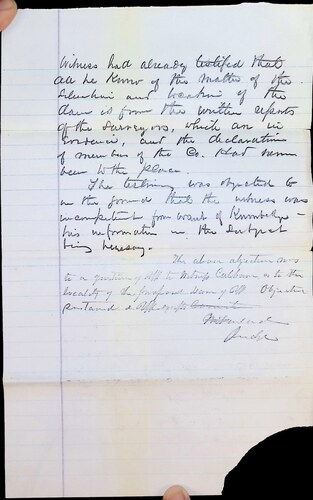 Witness had already testified that
all he knew of the matter of the
and breaking of the
dam is from the written reports
of the surveyors, which are in
evidence, and the declarations
of members of the Co. Had never
been to the place.
The testimony was objected to
on the ground that the witness was
incompetent from want of Knowledge -
his information on the subject
being hearsay.
The above objection was
to a question of Plff to Witness Calhoun as to the
locality of the proposed dam of Plff. Objection
sustained &
Judge